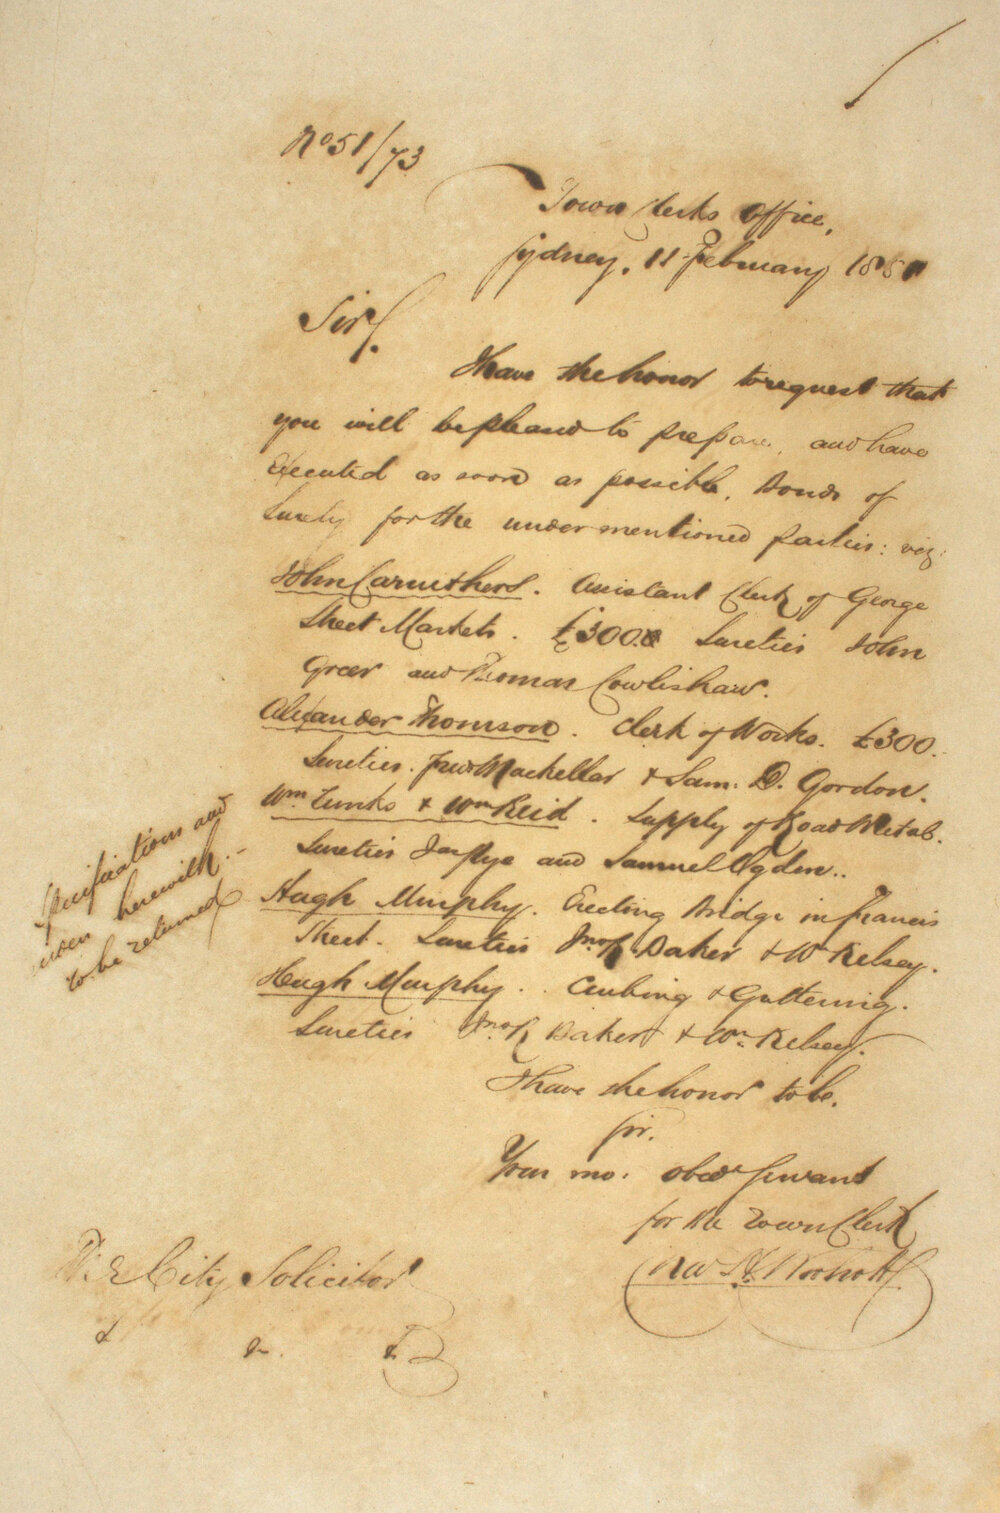 No 51/73
Town Clerks Office,
Sydney, 11 February 1851
Sir,
I Have the honor to request that
you will be pleased to prepare, and have
Executed as soon as possible, Bonds of
Surety for the under mentioned parties: viz:
John Caruthers. Assistant Clerk of George
Street Markets. £300. Sureties John
Greer and Thomas Cowlishaw.
Alexander Thomson. Clerk of Works. £300.
Sureties. Fred Mackellar & Sam. D. Gordon.
Wm Tunks & Wm Reid. Supply of Road Metal.
Sureties Jas Pye and Samuel Ogden..
Hugh Murphy. Erecting Bridge in Francis
Street. Sureties Jno R Baker & W Kelsey.
Hugh Murphy. Curbing & Guttering.
Sureties Jno R Baker & Wm Kelsey.
I have the honor to be,
Sir,
Your mo. obed Servant
for the Town Clerk
Specifications and
herewith
to be returned
The City Solicitor
& &c. &